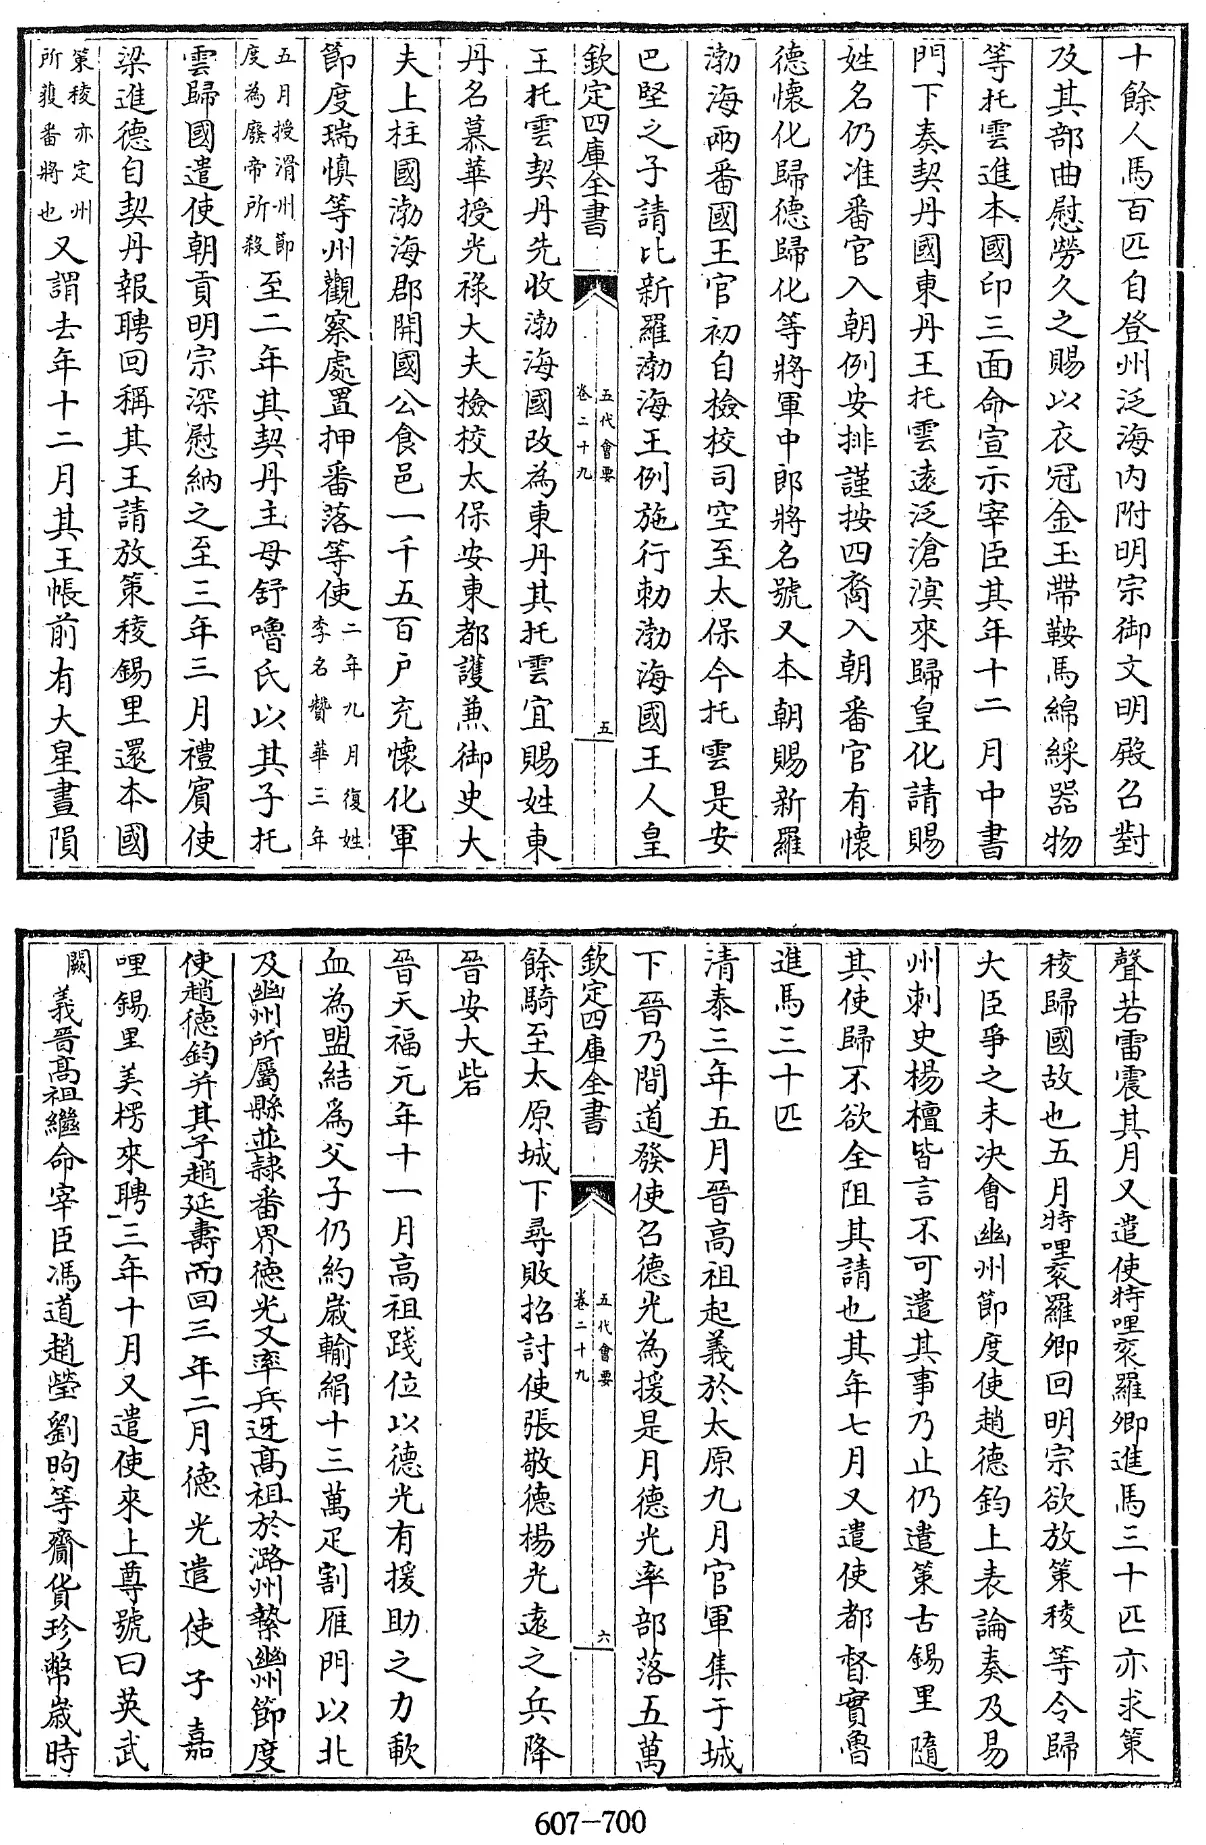 十餘人馬百匹自登州泛海内附明宗御文明殿召對
及其部曲慰勞久之賜以衣冠金玉帶鞍馬綿綵器物
等托雲進本國印三面命宣示宰臣其年十二月中書
門下奏契丹國東丹王托雲遠泛滄溟來歸皇化請賜
姓名仍准番官入朝例安排謹按四裔入朝番官有懷
德懷化歸德歸化等將軍中郎將名號又本朝賜新羅
渤海兩番國王官初自檢校司空至太保今托雲是安
巴堅之子請比新羅渤海王例施行勅渤海國王人皇
欽定四庫全書
五代會要
卷二十九
五
王托雲契丹先收渤海國改為東丹其托雲宜賜姓東
丹名慕華授光祿大夫檢校太保安東都護兼御史大
夫上柱國渤海郡開國公食邑一千五百户充懷化軍
節度瑞慎等州觀察處置押番落等使二年九月復姓
李名贊華三年
五月授滑州節
度為廢帝所殺至二年其契丹主母舒嚕氏以其子托
雲歸國遣使朝貢明宗深慰納之至三年三月禮賓使
梁進德自契丹報聘回稱其王請放策稜錫里還本國
策稜亦定州
所獲番將也又謂去年十二月其王帳前有大星晝隕
聲若雷震其月又遣使特哩衮羅卿進馬三十匹亦求策
稜歸國故也五月特哩衮羅卿回明宗欲放策稜等令歸
大臣爭之未決會幽州節度使趙德鈞上表論奏及易
州刺史楊檀皆言不可遣其事乃止仍遣策古錫里隨
其使歸不欲全阻其請也其年七月又遣使都督實魯
進馬三十匹
清泰三年五月晉高祖起義於太原九月官軍集于城
下晉乃間道發使召德光為援是月德光率部落五萬
欽定四庫全書
五代會要
卷二十九
六
餘騎至太原城下尋敗招討使張敬德楊光遠之兵降
晉安大砦
晉天福元年十一月高祖踐位以德光有援助之力歃
血為盟結為父子仍約歲輸絹十三萬疋割雁門以北
及幽州所屬縣並隷番界德光又率兵迓高祖於潞州縶幽州節度
使趙德鈞并其子趙延壽而回三年二月德光遣使子嘉
哩錫里美楞來聘三年十月又遣使來上尊號曰英武
闕義晉高祖繼命宰臣馮道趙瑩劉昫等齎貨珍幣歲時
607-700